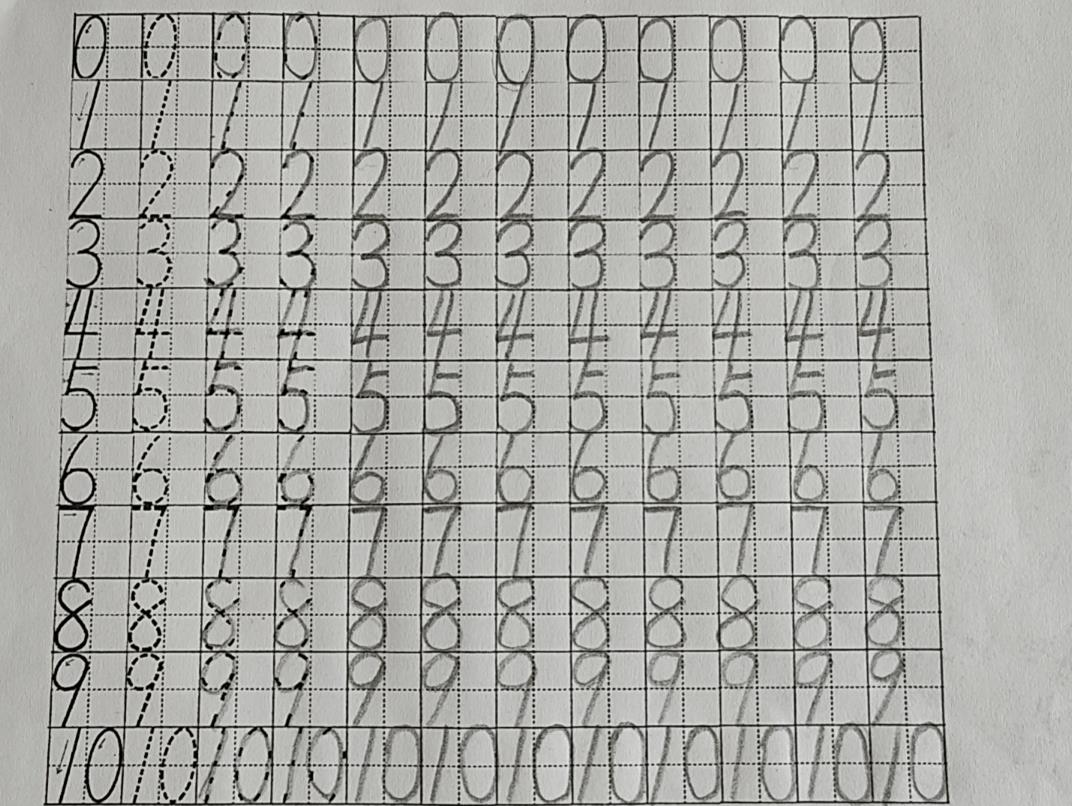 0 0 0 0 0 0 0 0 0 0 0 0
1 1 1 1 1 1 1 1 1 1 1 1
2 2 2 2 2 2 2 2 2 2 2 2
3 3 3 3 3 3 3 3 3 3 3 3
4 4 4 4 4 4 4 4 4 4 4 4
5 5 5 5 5 5 5 5 5 5 5 5
6 6 6 6 6 6 6 6 6 6 6 6
7 7 7 7 7 7 7 7 7 7 7 7
8 8 8 8 8 8 8 8 8 8 8 8
9 9 9 9 9 9 9 9 9 9 9 9
10 10 10 10 10 10 10 10 10 10 10 10